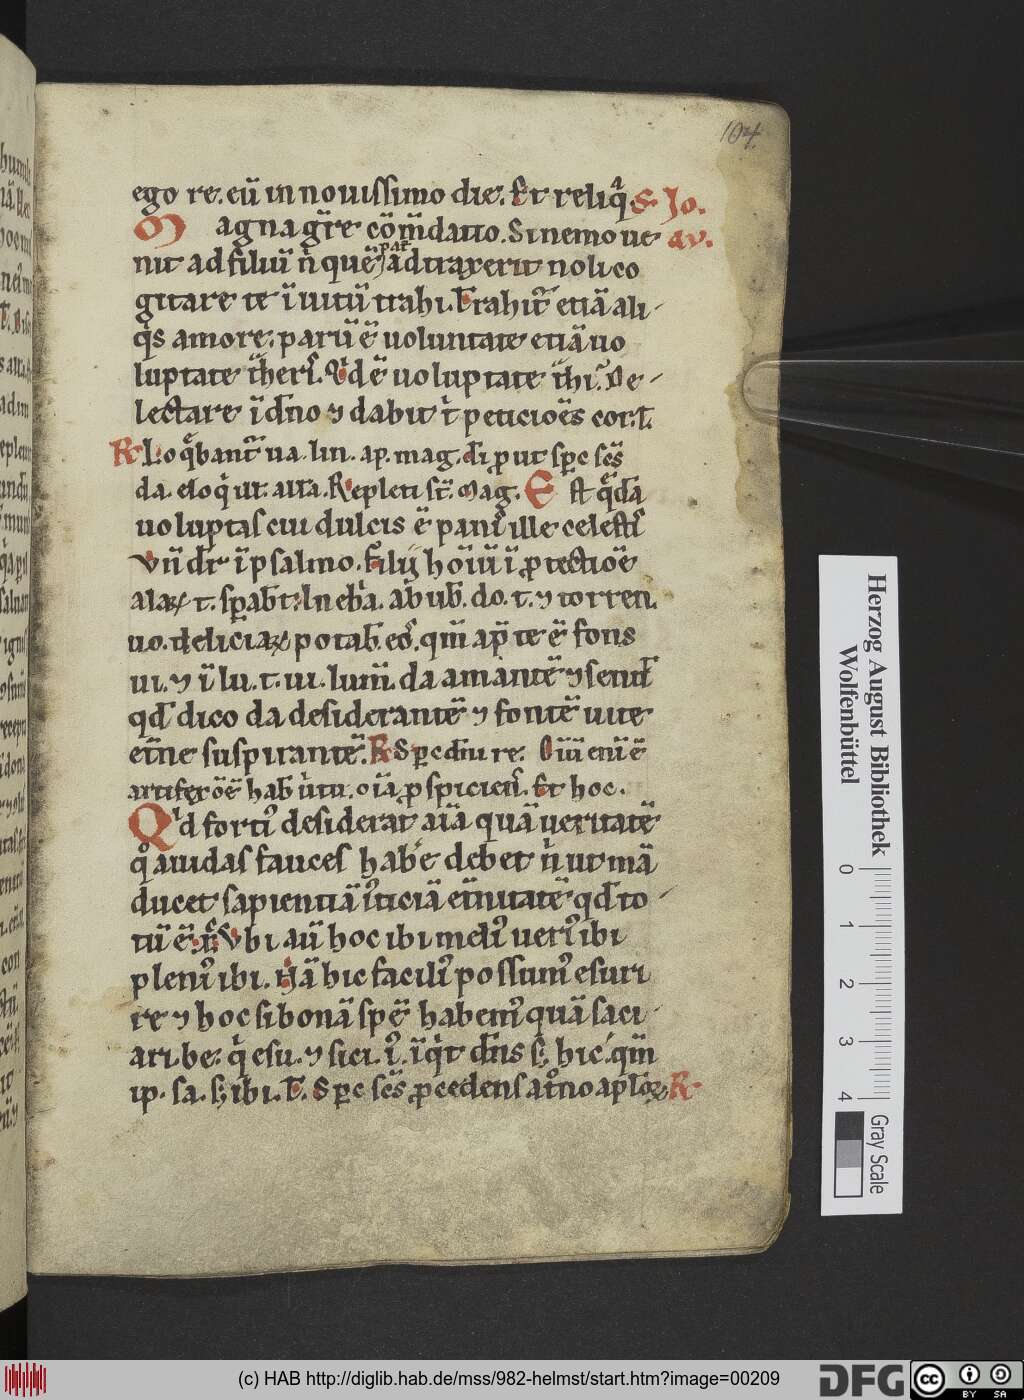 104
ego re. eū in nouissimo die. Et reliq̄ S. Io.
Magna gr̄e cōm̄datio. Si nemo ue au.
nit ad filiū n̄ quē pat̄ adtraxerit noli co
gitare te īuitū trahi. Trahit̄ etiā ali
q̄s amore. parū ē uoluntate etiā uo
luptate t̄heris. Qid ē uoluptate t̄hi. De
lectare ī dn̄o ⁊ dabit t̄ peticioēs cor. t.
R Loq̄bant̄ ua. lin. ap. mag. di ꝓut sp̄c sc̄s
da. eloq̄ ut. aīa. Repleti st̄. mag. Est q̄dā
uoluptas cui dulcis ē panis ille celestis
Vn̄ dr̄ ī psalmo. Filij hoīuū ī ꝓtectiōe
alaꝝ t. sꝑab̄t. Inebr̄a. ab ub. do. t. ⁊ torren.
uo. deliciaꝝ potab. eos. qm̄ ap̄ te ē fons
ui. ⁊ ī lu. t. ui. lum̄. da amantē ⁊ sentit̄
qd̄ dico da desiderantē ⁊ fontē uite
et̄ne suspirantē. R Sꝑc dn̄i re. Oīū eni ē
artifex ōē hab̄ uirtu. oīa ꝓspiciens. Et hoc.
Qid fortiꝰ desiderat aīā quā ueritatē
qͦ auidas fauces habe debet n̄ ut mā
ducet sapientiā iusticiā et̄nitatē qd̄ to
tū ē. R̄ Vbi aū hoc ibi meliꝰ ueriꝰ ibi
pleniꝰ ibi. Nā hic faciliꝰ possumꝰ esuri
re ⁊ hoc si bonā spē habemꝰ quā saci
ari. be. q̄ esu. ⁊ sici. i. īqt dn̄s ꝫ hic. qm̄
ip. sa. ꝫ ibi. T. Sꝑc sc̄s ꝓcedens at̄no ap̄loꝝ R
Herzog August Bibliothek
Wolfenbüttel
0 1 2 3 4
Gray Scale
(c) HAB http://diglib.hab.de/mss/982-helmst/start.htm?image=00209
DFG
cc BY SA